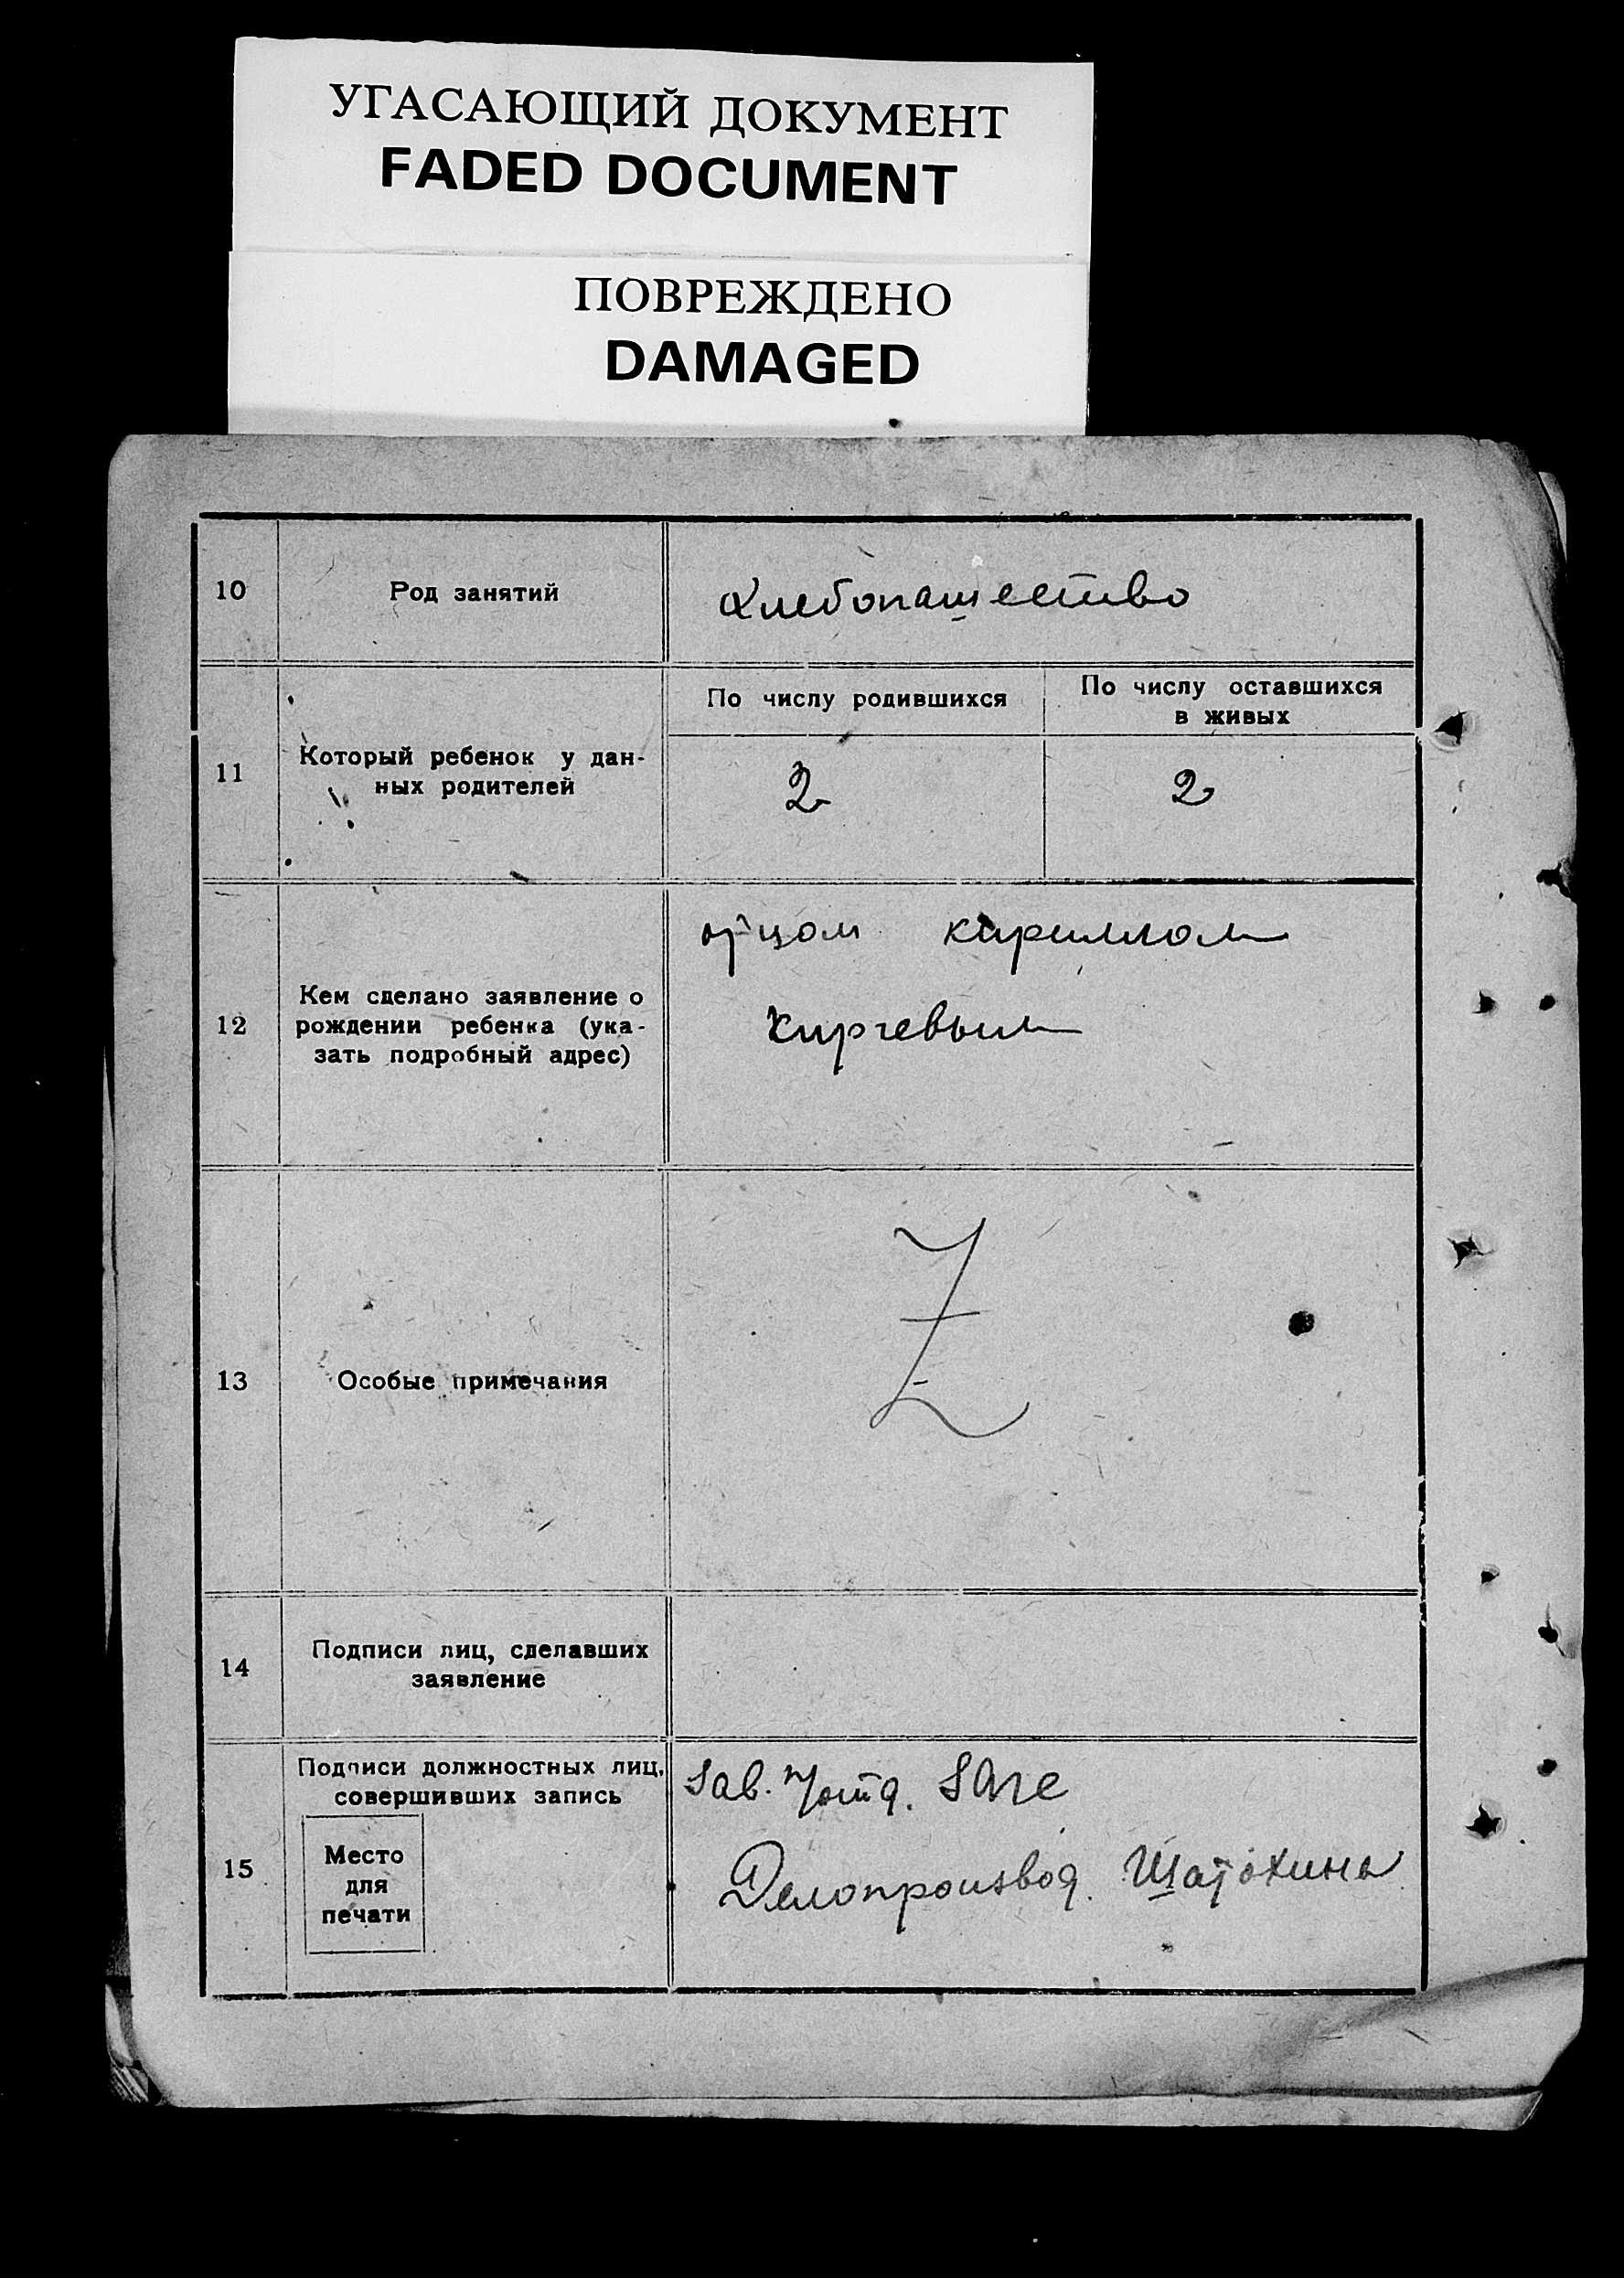 УГАСАЮЩИЙ ДОКУМЕНТ
FADED DOCUMENT
ПОВРЕЖДЕНО
DAMAGED
10
Род занятий
хлебопашество
11
Который ребенок у дан-
ных родителей
По числу родившихся
По числу оставшихся
в живых
2
2
12
Кем сделано заявление о
рождении ребенка (ука-
зать подробный адрес)
отцом кириллом
Киргевым
13
Особые примечания
Z
14
Подписи лиц, сделавших
заявление
15
Подписи должностных лиц,
совершивших запись
Место
для
печати
Зав.
Делопроизвод. Шатохина